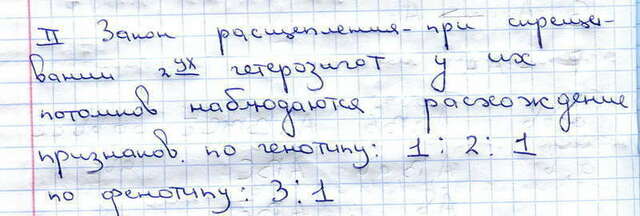 II Закон расщепления - при скрещи-
вании 2ух гетерозигот у их
потомков наблюдаются расхождение
признаков. по генотипу: 1 : 2 : 1
по фенотипу: 3 : 1